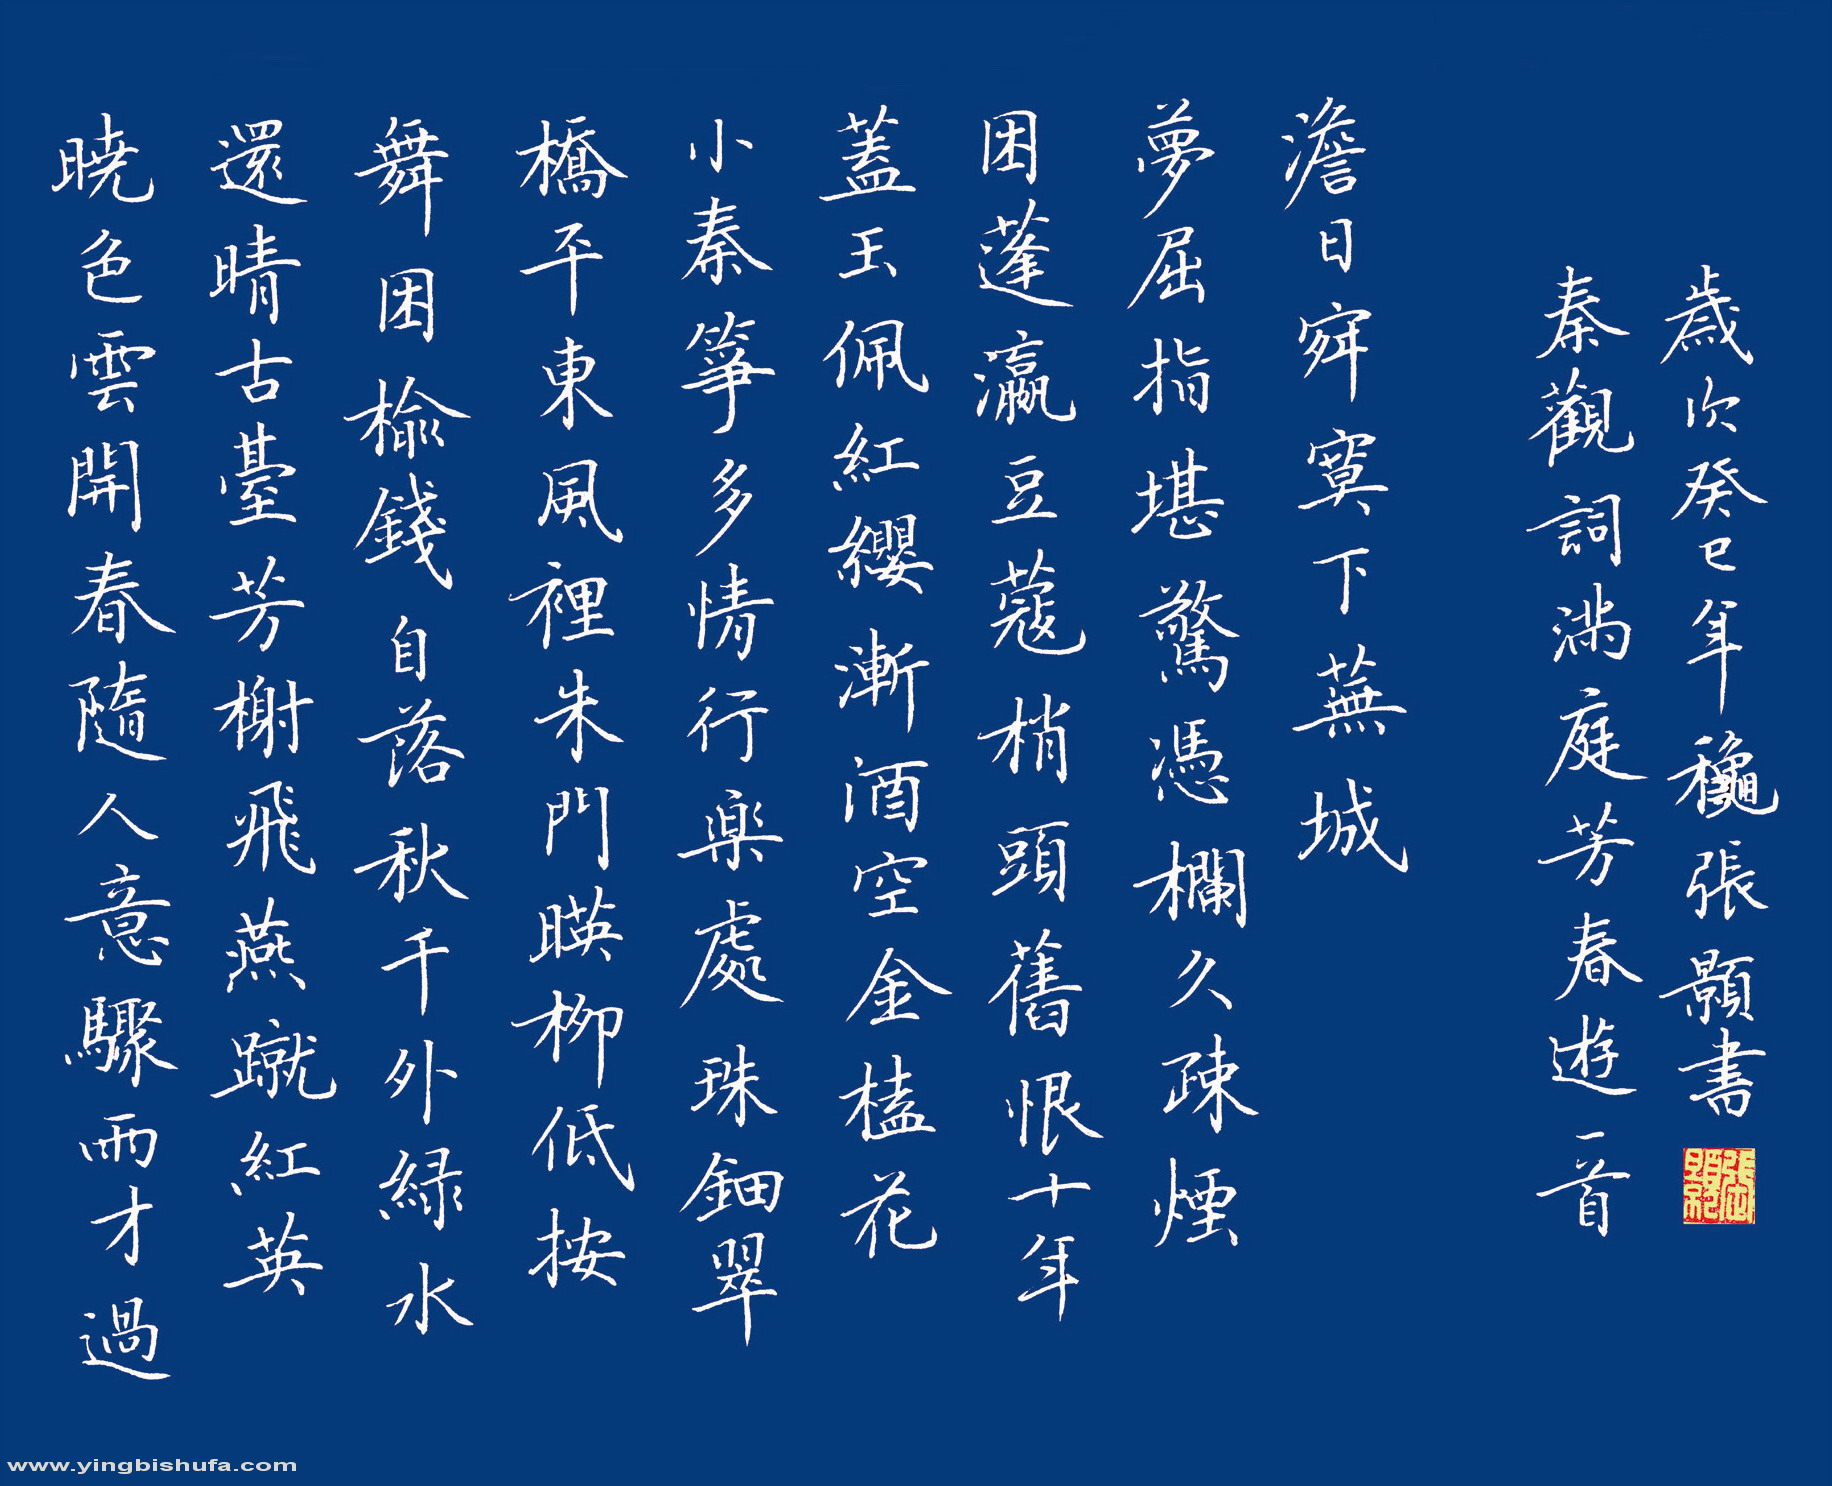 暁色雲開春隨人意驟雨才過
還晴古臺芳榭飛燕蹴紅英
舞困榆錢自落秋千外緑水
橋平東風裡朱門暎柳低按
小秦箏多情行楽處珠鈿翠
蓋玉佩紅纓漸酒空金榼花
困蓬瀛豆蔻梢頭舊恨十年
夢屈指堪驚憑欄久疎煙
澹日寂寞下蕪城
秦觀詞滿庭芳春遊一首
歲次癸巳年穐張顥書
www.yingbishufa.com